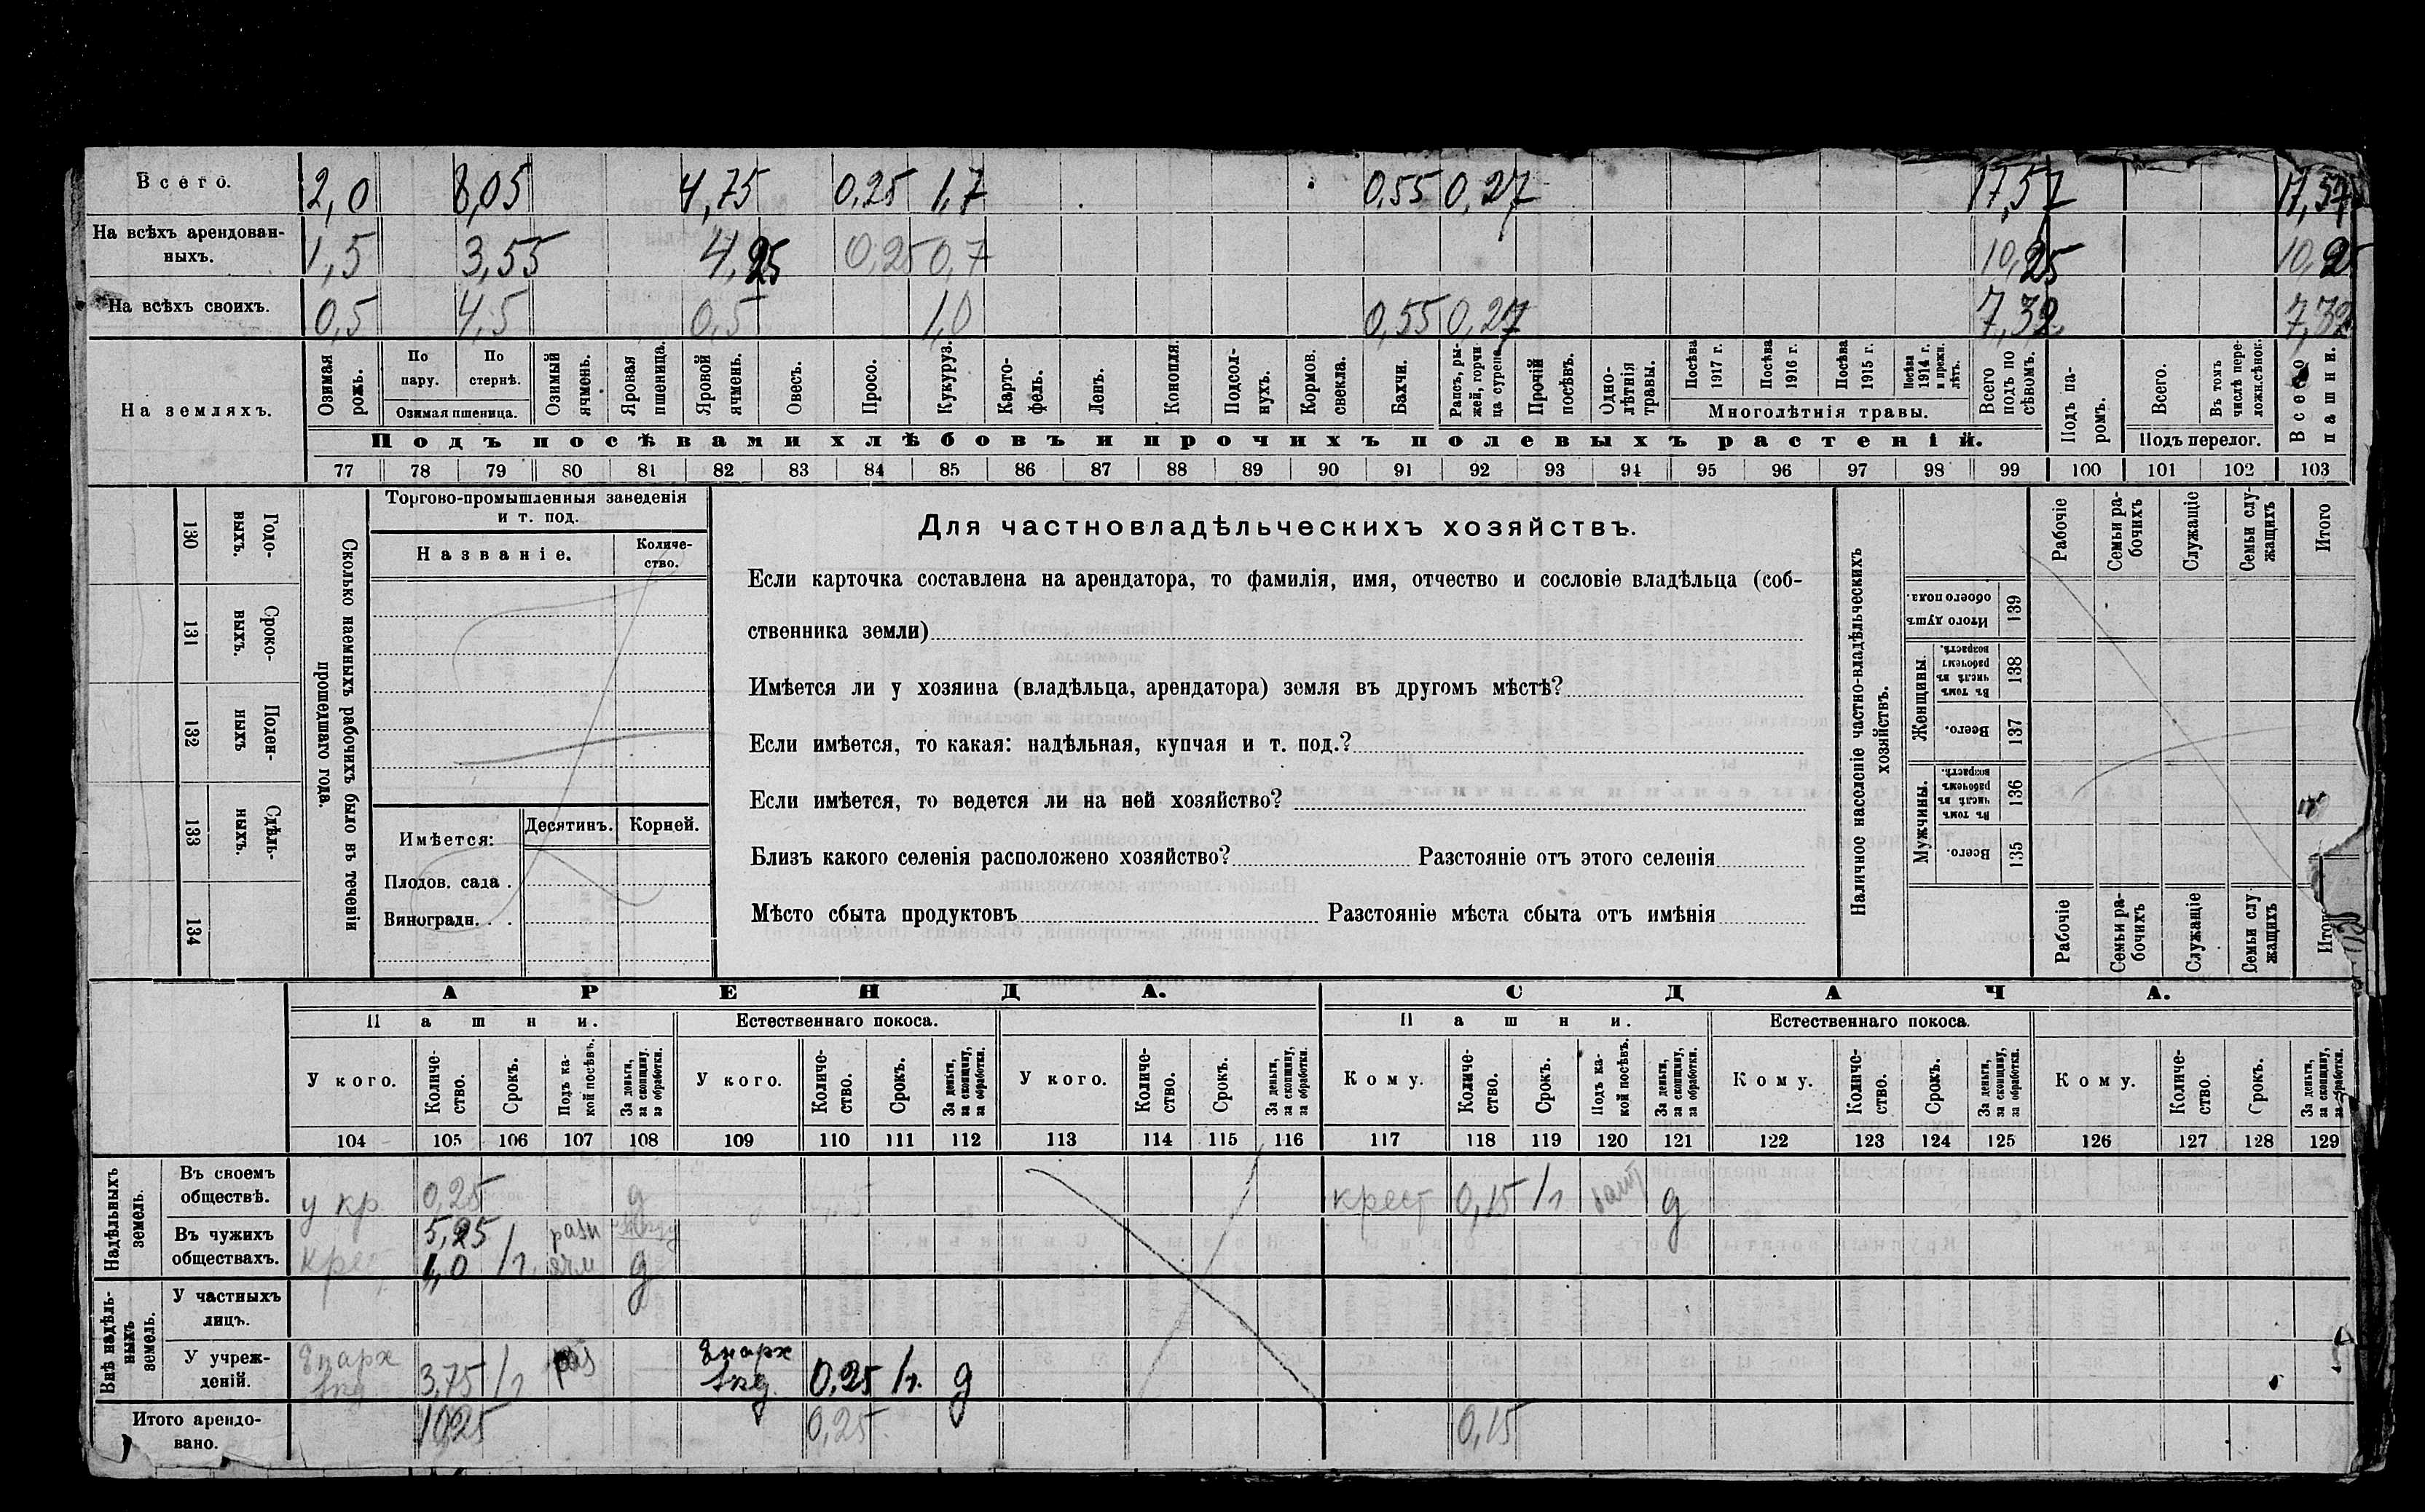 Всего. 2,0 8,05 4,75 0,25 1,7 0,55 0,27 17,57 17,57
На всѣхъ арендован-
ныхъ. 1,5 3,55 4,25 0,25 0,7 10,25 10,25
На всѣхъ своихъ. 0,5 4,5 0,5 1,0 0,55 0,27 7,32 7,32
На земляхъ.
Озимая рожь.
По пару.
По стернѣ.
Озимая пшеница.
Озимый ячмень.
Яровая пшеница.
Яровой ячмень.
Овесъ.
Просо.
Кукуруз.
Карто-
фель.
Ленъ.
Конопля.
Подсол-
нухъ.
Кормов. свекла.
Бахчи.
Рапсъ, ры-
жей, горчи
ца сурепа.
Прочій посѣвъ.
Одно-
лѣтнія
травы.
Посѣва 1917 г.
Посѣва 1916 г.
Посѣва 1915 г.
Посѣва 1914 г. и прежн. лѣтъ.
Многолѣтнія травы.
Всего подъ по
сѣвомъ.
Подъ па-
ромъ.
Всего.
Въ томъ числѣ пере-
ложн.сѣнок.
Подъ перелог.
Всего пашни.
Подъ посѣвами хлѣбовъ и прочихъ полевыхъ растеній.
77 78 79 80 81 82 83 84 85 86 87 88 89 90 91 92 93 94 95 96 97 98 99 100 101 102 103
130 Годо-
выхъ.
131 Сроко-
ныхъ.
132 Поден-
ныхъ
133 Сдѣль-
ныхъ.
134
Сколько наемныхъ рабочихъ было въ теченіи
прошедшаго года.
Торгово-промышленныя заведенія
и т. под.
Названіе.
Количе-
ство.
Имѣется:
Десятинъ.
Корней.
Плодов. сада .
Виноградн. . .
Для частновладѣльческихъ хозяйствъ.
Если карточка составлена на арендатора, то фамилія, имя, отчество и сословіе владѣльца (соб-
ственника земли)
Имѣется ли у хозяина (владѣльца, арендатора) земля въ другомъ мѣстѣ?
Если имѣется, то какая: надѣльная, купчая и т. под.?
Если имѣется, то ведется ли на ней хозяйство?
Близъ какого селенія расположено хозяйство? Разстояніе отъ этого селенія
Мѣсто сбыта продуктовъ Разстояніе мѣста сбыта отъ имѣнія
Наличное населеніе частно-владѣльческихъ
хозяйствъ.
Рабочіе
Семьи ра-
бочихъ
Служащіе
Семьи слу-
жащихъ
Итого
Итого душъ обоего пола. 139
Женщины.
Въ томъ числѣ въ рабочемъ возрастѣ. 138
Всего. 137
Мужчины.
Въ томъ числѣ въ рабочемъ возрастѣ. 136
Всего. 135
Рабочіе
Семьи ра-
бочихъ
Служащіе
Семьи слу
жащихъ
АРЕНДА. СДАЧА.
Пашни. Естественнаго покоса. Пашни. Естественнаго покоса.
У кого. Количе-
ство. Срокъ. Подъ ка-
кой посѣвъ. За деньги,
за скопщину,
за обработки.
У кого. Количе-
ство. Срокъ. За деньги,
за скопщину,
за обработки.
У кого. Количе-
ство. Срокъ. За деньги,
за скопщину,
за обработки.
Кому. Количе-
ство. Срокъ. Подъ ка-
кой посѣвъ. За деньги,
за скопщину,
за обработки.
Кому. Количе-
ство. Срокъ. За деньги,
за скопщину,
за обработки.
Кому. Количе-
ство. Срокъ. За деньги,
за скопщину,
за обработки.
104 105 106 107 108 109 110 111 112 113 114 115 116 117 118 119 120 121 122 123 124 125 126 127 128 129
Надѣльныхъ
земель.
Въ своемъ
обществѣ. у кр 0,25 д крест 0,15 1г д
Въ чужихъ 5,25 разн
обществахъ. крес 1,0 1г. ячм д
Внѣ надѣль-
ныхъ
земель.
У частныхъ
лицъ.
У учреж-
деній. Епарх 3,75 1г Епарх 0,25 1г. д
Итого арендо-
вано. 10,25 0,25 0,15